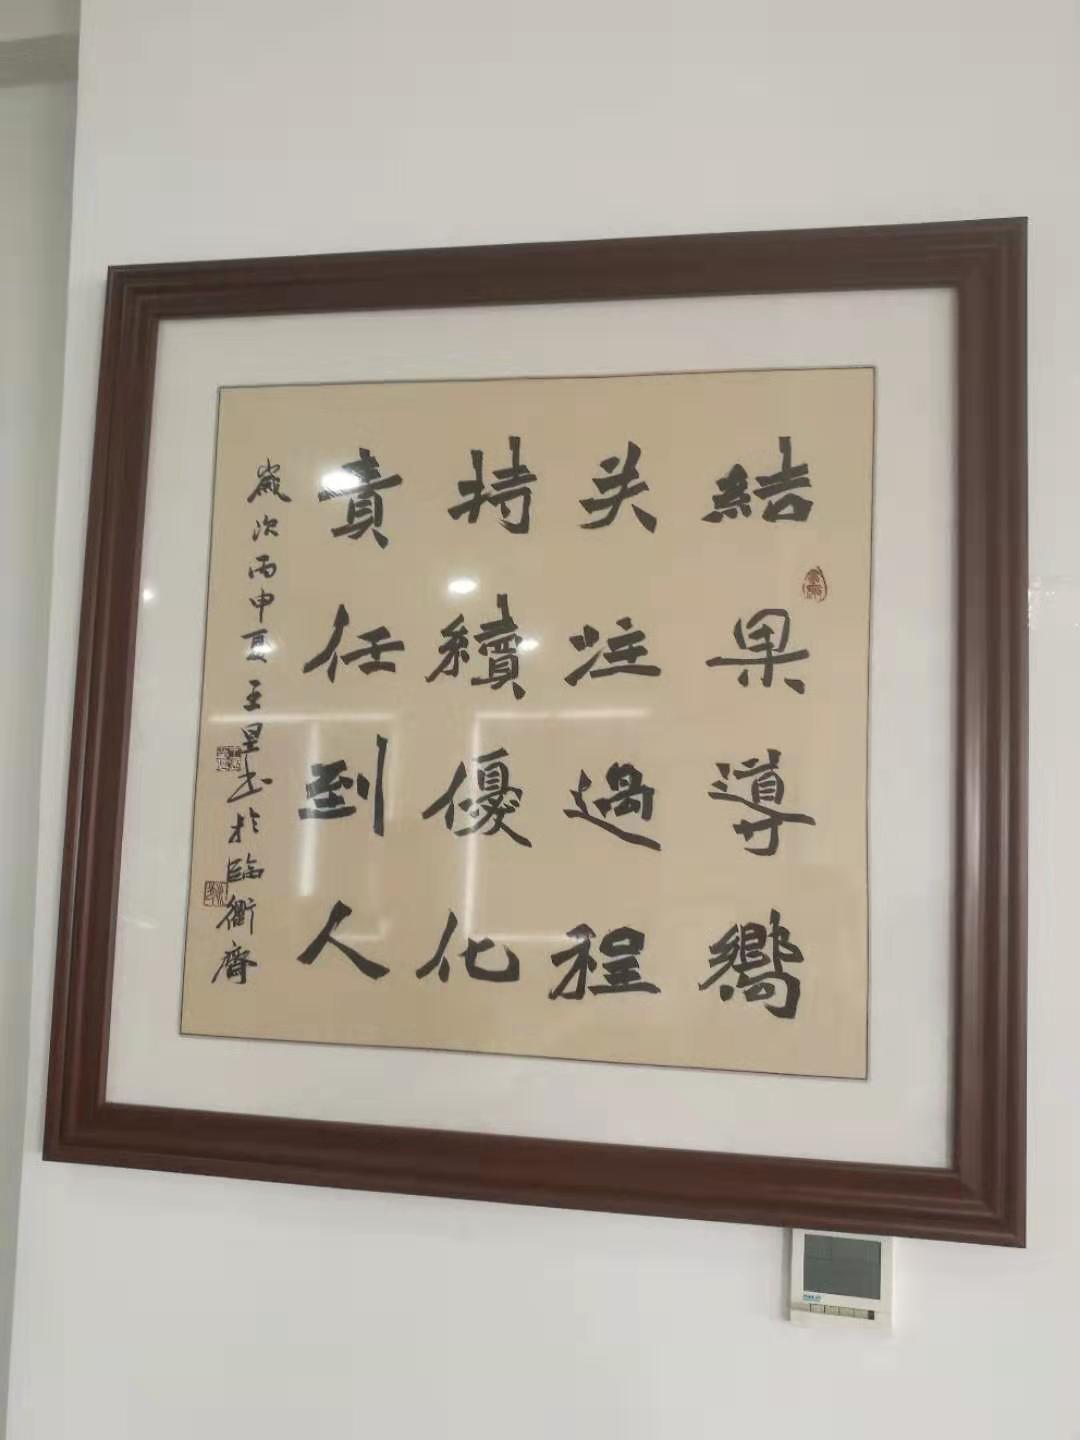 結果導嚮
关注過程
持續優化
責任到人
歲次丙申夏王星书於臨衢齋